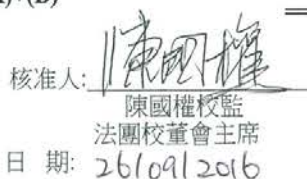 核准人: 陳國權
陳國權校監
法團校董會主席
日 期: 26/09/2016